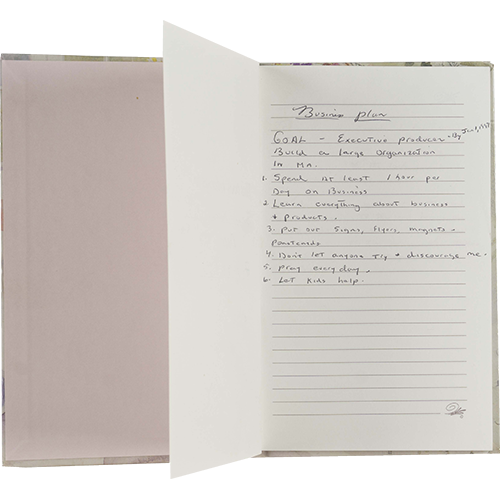 Business plan
GOAL - Executive producer - By Jan 1,
Build a large organization
in MA.
1. Spend at least 1 hour per
Day on Business
2. Learn everything about business
+ products.
3. Put out signs, flyers, magnets -
4. Don't let anyone try + discourage me.
5. Pray everyday.
6. Let kids help.